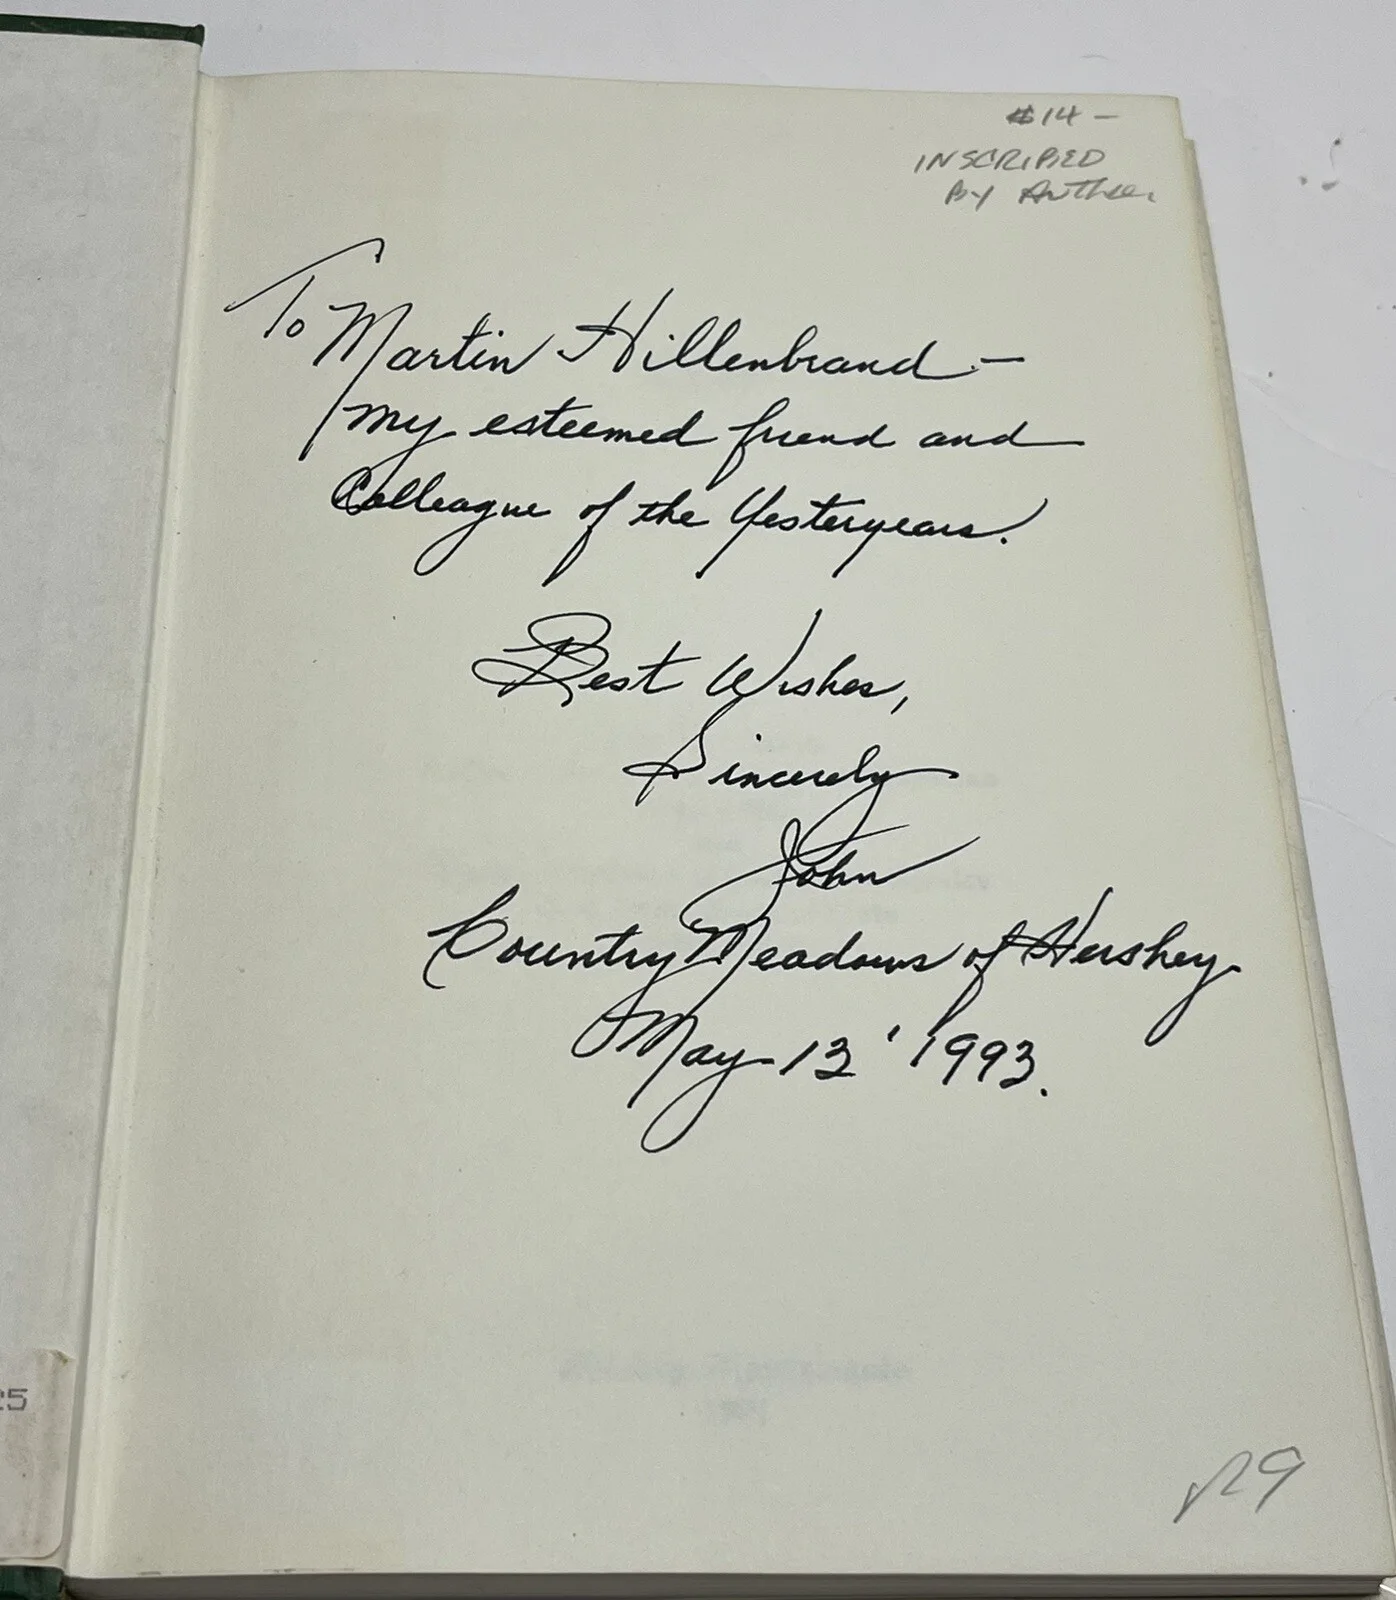 $14 -
INSCRIBED
By Author
To Martin Hillenbrand -
my esteemed friend and
Colleague of the Yesteryears.
Best Wishes,
Sincerely
John
Country Meadows of Hershey
May 13' 1993.
25